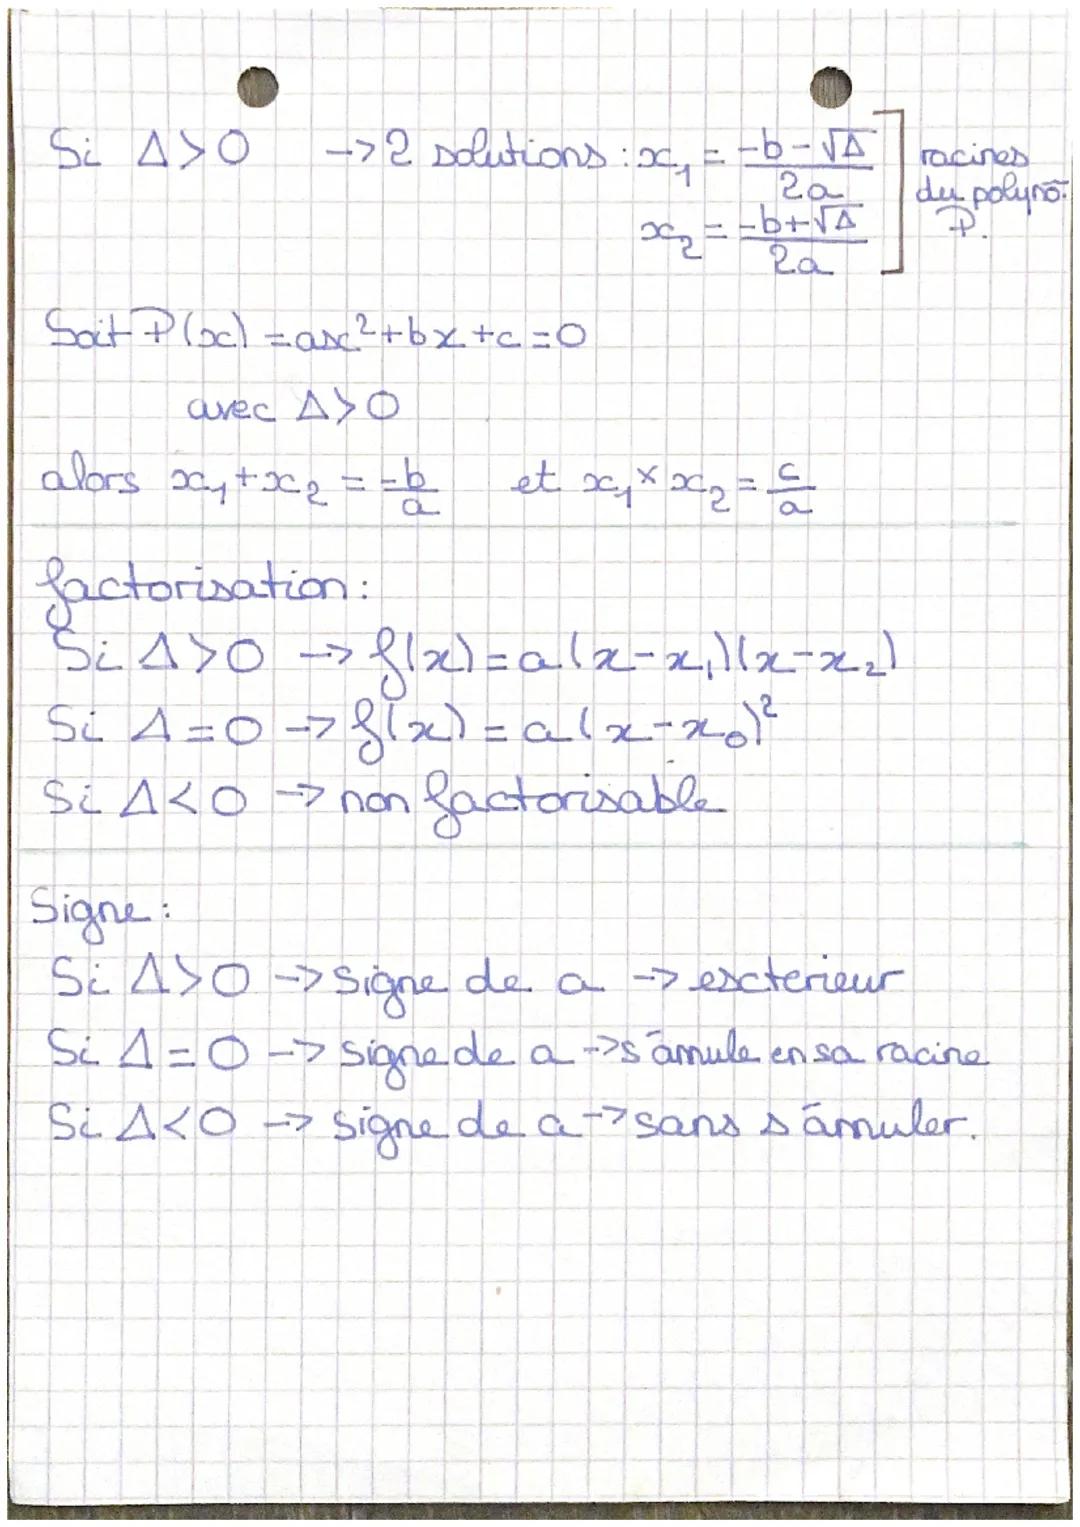 Si Δ>0 → 2 solutions : x₁ = (-b-√Δ)/2a
x₂ = (-b+√Δ)/2a
racines
du polynô.
P.
Soit P(x) = ax²+bx+c=0
avec Δ>0
alors x₁+x₂ = -b/a et x₁×x₂ = c/a
factorisation:
Si Δ>0 → f(x)=a(x-x₁)(x-x₂)
Si Δ=0 → f(x)=a(x-x₀)²
Si Δ<0 → non factorisable
Signe:
Si Δ>0 → signe de a → exterieur
Si Δ=0 → signe de a → s'annule en sa racine
Si Δ<0 → signe de a → sans s'annuler.